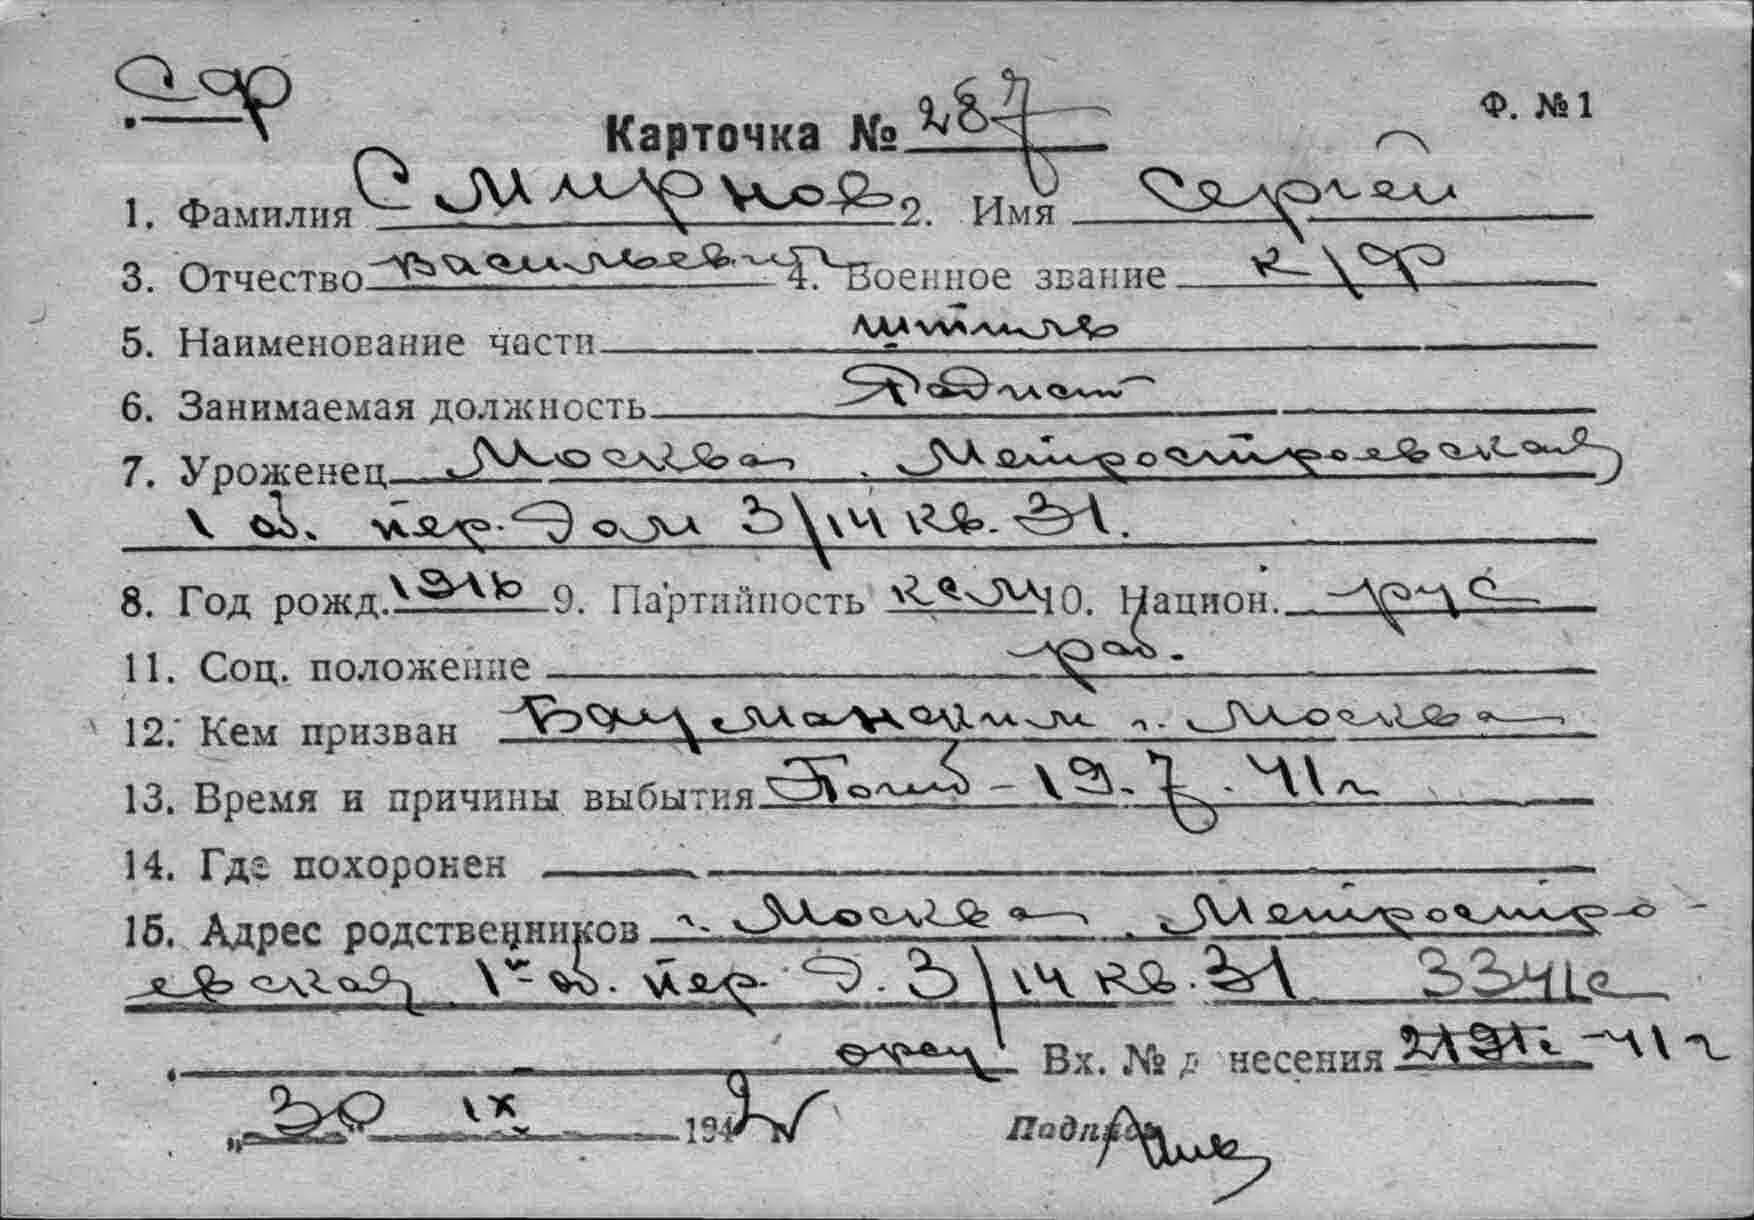 СФ
Ф. № 1
Карточка № 287
1. Фамилия Смирнов 2. Имя Сергей
3. Отчество Васильевич 4. Военное звание к/ф
5. Наименование части штиль
6. Занимаемая должность Радист
7. Уроженец Москва. Метростроевская
1 об. пер. Дом 3/14 кв. 31.
8. Год рожд. 1916 9. Партийность 10. Национ. рус
11. Соц. положение раб.
12. Кем призван Бауманским г. Москва
13. Время и причины выбытия Погиб - 19.7.41 г
14. Где похоронен
15. Адрес родственников г. Москва. Метростро-
евская 1й об. пер. Д. 3/14 кв. 31 3341с
отец Вх. № донесения -41 г
„30“ IX 1942
Подпись